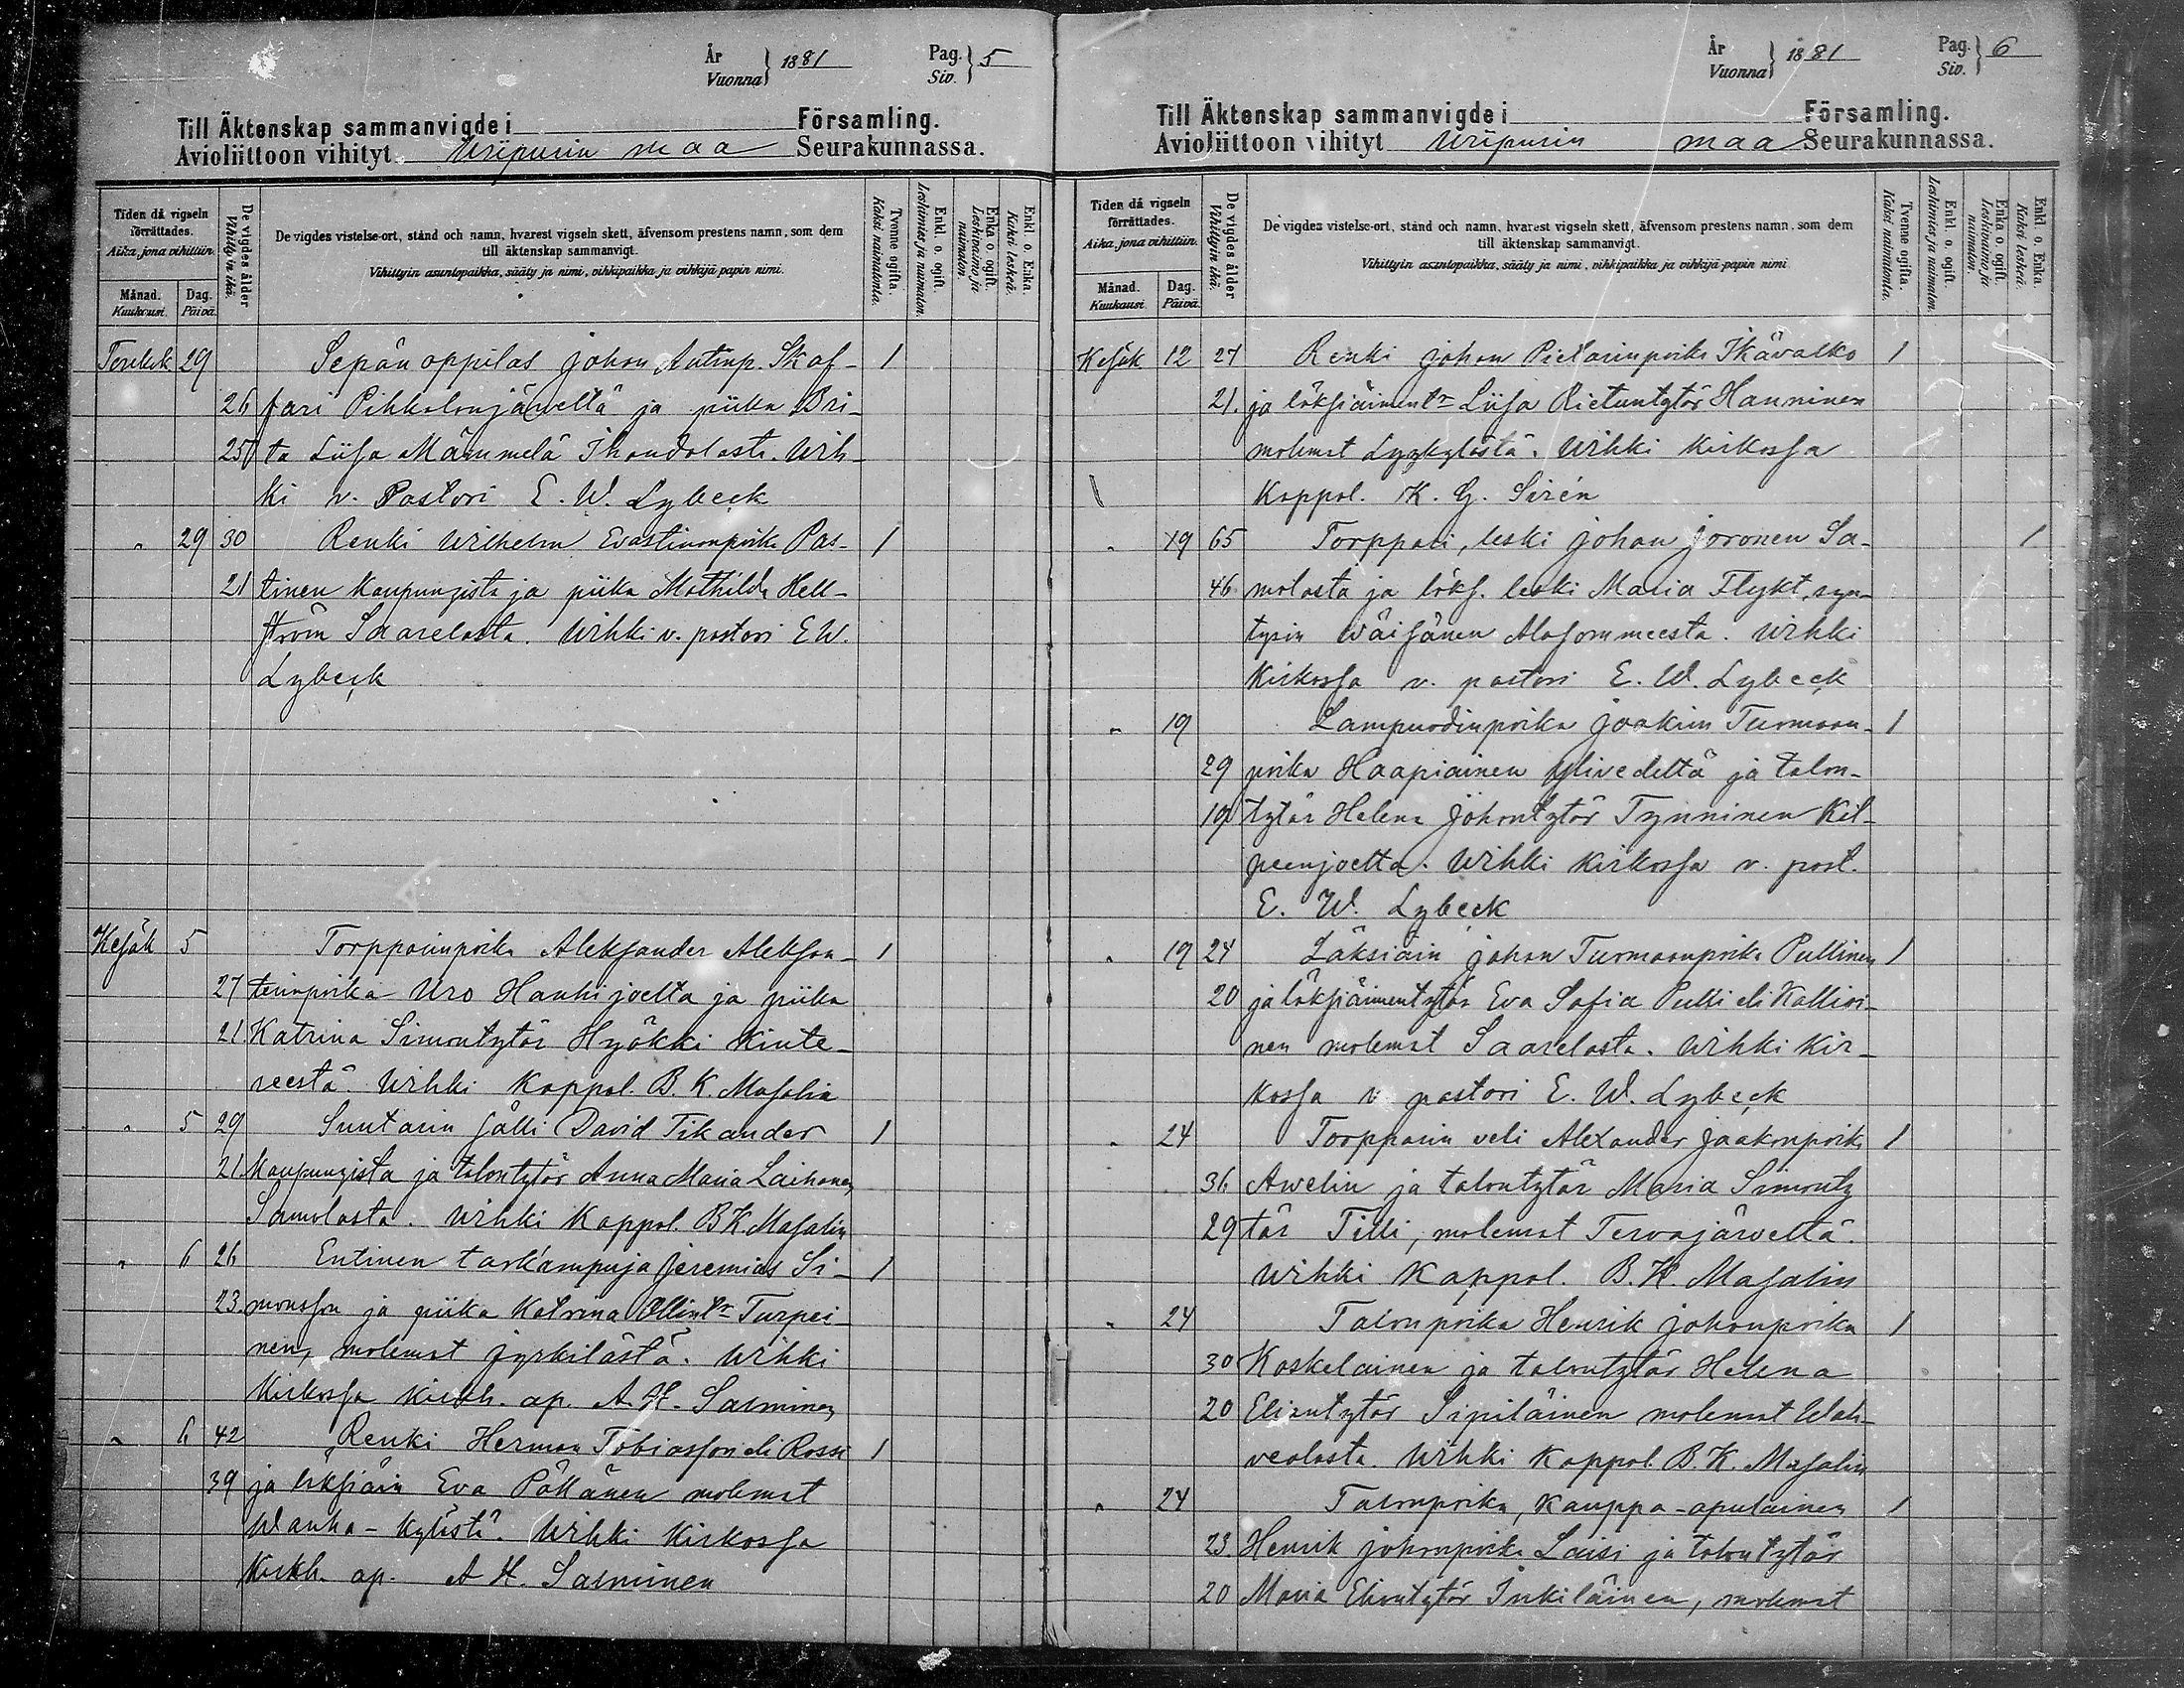 År Vuonna } 1881 Pag. Siv. } 5
Till Äktenskap sammanvigde i Församling.
Avioliittoon vihityt Wiipurin maa Seurakunnassa.
Tiden då vigseln förrättades.
Aika, jona vihittiin.
Månad. Kuukausi.
Dag. Päivä.
De vigdes ålder
Vihittyin ikä.
De vigdes vistelse-ort, stånd och namn, hvarest vigseln skett, äfvensom prestens namn, som dem
till äktenskap sammanvigt.
Vihittyin asuntopaikka, sääty ja nimi, vihkipaikka ja vihkijä papin nimi.
Tvenne ogifta.
Kaksi naimatonta.
Enkl. o. ogift.
Leskimies ja naimaton.
Enka o. ogift.
Leskivaimo ja naimaton.
Enkl. o. Enka.
Kaksi leskeä.
Toukok 29 Sepän oppilas Johan Antinp. Skaf- 1
26 fari Pihkalanjärveltä ja piika Bri-
25 ta Liisa Mämmelä Ihandolasta. Wih-
ki v. Pastori E. W. Lybeck
" 29 30 Renki Wilhelm Evastinanpoika Pas- 1
21 tinen Kaupungista ja piika Mathilda Hell-
ström Saarelasta. Wihki v. pastori E W.
Lybeck
Kesäk 5 Torpparinpoika Aleksander Aleksan- 1
27 terinpoika Uro Hanhijoelta ja piika
21 Katrina Simontytär Hyökki Kinte-
reestä. Wihki Kappal. B. K. Masalin
" 5 29 Suutarin sälli David Tikander 1
21. Kaupungista ja talontytär Anna Maria Laihanen
Samolasta. Wihki Kappal. B K. Masalin
" 6 26 Entinen tarkampuja Jeremias Si- 1
23. monsson ja piika Katrina Ollintr Turpei-
nen, molemat Jyrkilästä. Wihki
Kirkossa kirkh. ap. A. H. Salminen
" 6 42 Renki Herman Tobiasson eli Rossi 1
39 ja läksiäin Eva Pällänen molemat
Wanha-kylästä. Wihki Kirkossa
Kirkh. ap. A H. Salminen
År Vuonna } 1881 Pag. Siv. } 6
Till Äktenskap sammanvigde i Församling.
Avioliittoon vihityt Wiipurin maa Seurakunnassa.
Tiden då vigseln förrättades.
Aika, jona vihittiin.
Månad. Kuukausi
Dag. Päivä.
De vigdes ålder
Vihittyin ikä.
De vigdes vistelse-ort, stånd och namn, hvarest vigseln skett, äfvensom prestens namn, som dem
till äktenskap sammanvigt.
Vihittyin asuntopaikka, sääty ja nimi, vihkipaikka ja vihkijä papin nimi
Tvenne ogifta.
Kaksi naimatonta.
Enkl. o. ogift.
Leskimies ja naimaton.
Enka o. ogift.
Leskivaimo ja naimaton.
Enkl. o. Enka.
Kaksi leskeä.
Kesäk 12 27 Renki Johan Pietarinpoika Ikävalko 1
21. ja läksiäimentr Liisa Rietuntytär Hanninen
molemat Lyykylästä. Wihki Kirkossa
Kappal. K. G. Sirén
" 19 65 Torppari, leski Johan Joronen Sa- 1
46 molasta ja läks. leski Maria Flykt, syn-
tysin Wäisänen Alasommeesta. Wihki
Kirkossa v. pastori E. W. Lybeck
" 19 Lampuodinpoika Joakim Tuomaan- 1
29 poika Haapiainen Ylivedeltä ja talon-
19 tytär Helena Johontytär Tynninen Kil-
peenjoelta. Wihki kirkossa v. past.
E. W. Lybeck
" 19 24 Läksiäin Johan Tuomaanpoika Pullinen 1
20 ja läksiäimentytär Eva Sofia Pulli eli Kalloi-
nen molemat Saarelasta. Wihki Kir-
kossa v pastori E. W. Lybeck
" 24 Torpparin veli Alexander Jaakonpoika 1
36 Awelin ja talontytär Maria Simonty
29 tär Tilli, molemat Tervajärveltä.
Wihki Kappal. B. K. Masalin
" 24 Talonpoika Henrik Johonpoika 1
30 Koskelainen ja talontytär Helena
20 Eliantytär Sipiläinen molemat Wah-
vealasta. Wihki Kappal. B. K. Masalin
" 24 Talonpoika, Kauppa-apulainen 1
23. Henrik Johonpoika Laisi ja talontytär
20 Maria Eliontytär Inkiläinen, molemat